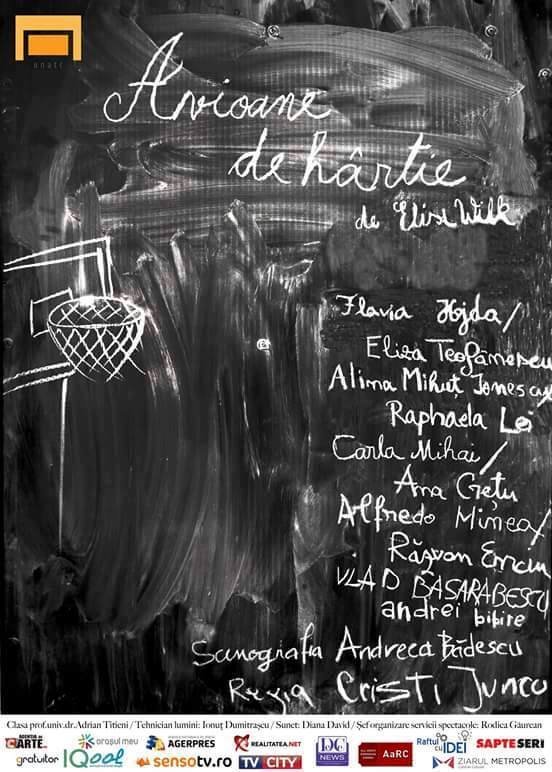 unatc
Avioane
de hârtie
de Elise Wilk
Flavia Hojda/
Eliza Teofănescu
Alina Mihuț Ionescu/
Raphaela Lei
Carla Mihai/
Ana Gețu
Alfredo Minea/
Răzvan Enciu
VLAD BĂSĂRĂBESCU
andrei bibire
Scenografia Andreea Bădescu
Regia Cristi Juncu
Clasa prof.univ.dr.Adrian Titieni / Tehnician lumini: Ionuț Dumitrașcu / Sunet: Diana David / Șef organizare servicii spectacole: Rodica Găurean
AGENȚIA DE CARTE.RO orașul meu AGERPRES REALITATEA.NET DC NEWS AaRC Raftul cu IDEI SAPTE SERI
gratuitor IQool sensotv.ro TV CITY ZIARUL METROPOLIS